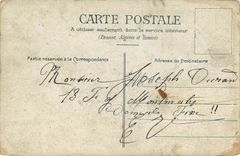 CARTE POSTALE
A utiliser seulement dans le service intérieur
(France, Algérie et Tunisie)
Partie réservée à la Correspondance
Adresse du Destinataire
Monsieur Joseph Durand
13 F